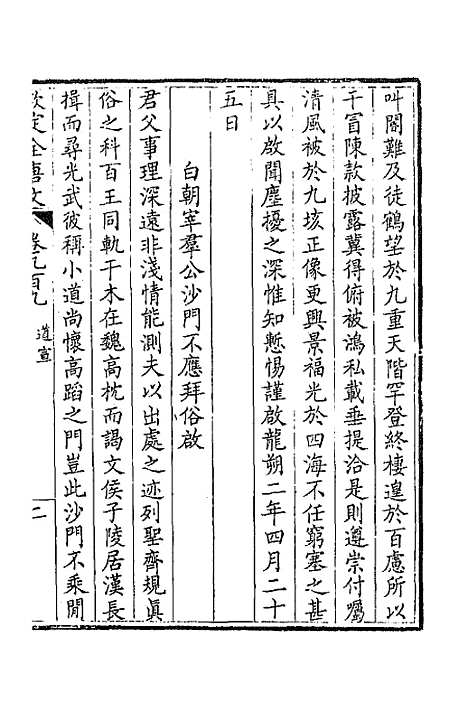 叫閽難及徒鶴望於九重天階罕登終棲遑於百慮所以
干冒陳款披露冀得俯被鴻私載垂提洽是則遵崇付囑
清風被於九垓正像更興景福光於四海不任窮塞之甚
具以啟聞塵擾之深惟知慙惕謹啟龍朔二年四月二十
五日
白朝宰羣公沙門不應拜俗啟
君父事理深遠非淺情能測夫以出處之迹列聖齊規眞
俗之科百王同軌干木在魏高枕而謁文侯子陵居漢長
揖而尋光武彼稱小道尚懷高蹈之門豈此沙門不乘閒
欽定全唐文
卷九百九
道宣
二